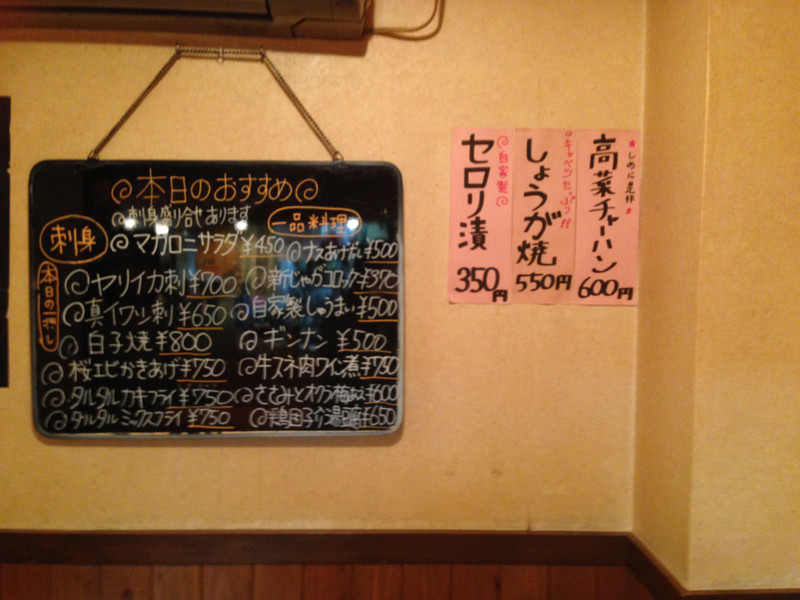 本日のおすすめ
刺身盛り合せあります
刺身
一品料理
本日の一押し
マカロニサラダ ¥450
ヤリイカ刺 ¥700
真イワシ刺 ¥650
白子焼 ¥800
桜エビかきあげ ¥750
タルタルカキフライ ¥750
タルタルミックスフライ ¥750
ナスあげだし ¥500
新じゃがコロッケ ¥370
自家製しゅうまい ¥500
ギンナン ¥500
牛スネ肉ワイン煮 ¥750
ささみとオクラ梅あえ ¥600
¥650
自家製
セロリ漬
350円
キャベツたっぷり!!
しょうが焼
550円
高菜チャーハン
600円